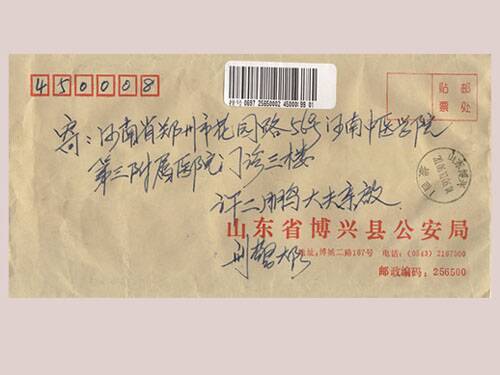 450008
挂号 0697 25650002 45000899 01
贴邮
票处
寄：河南省郑州市花园路56号河南中医学院
第三附属医院门诊三楼
许二鹏大夫亲啟
山东省博兴县公安局
刑警大队
地址：博城二路107号 电话：(0543) 2167500
邮政编码：256500
山东博兴